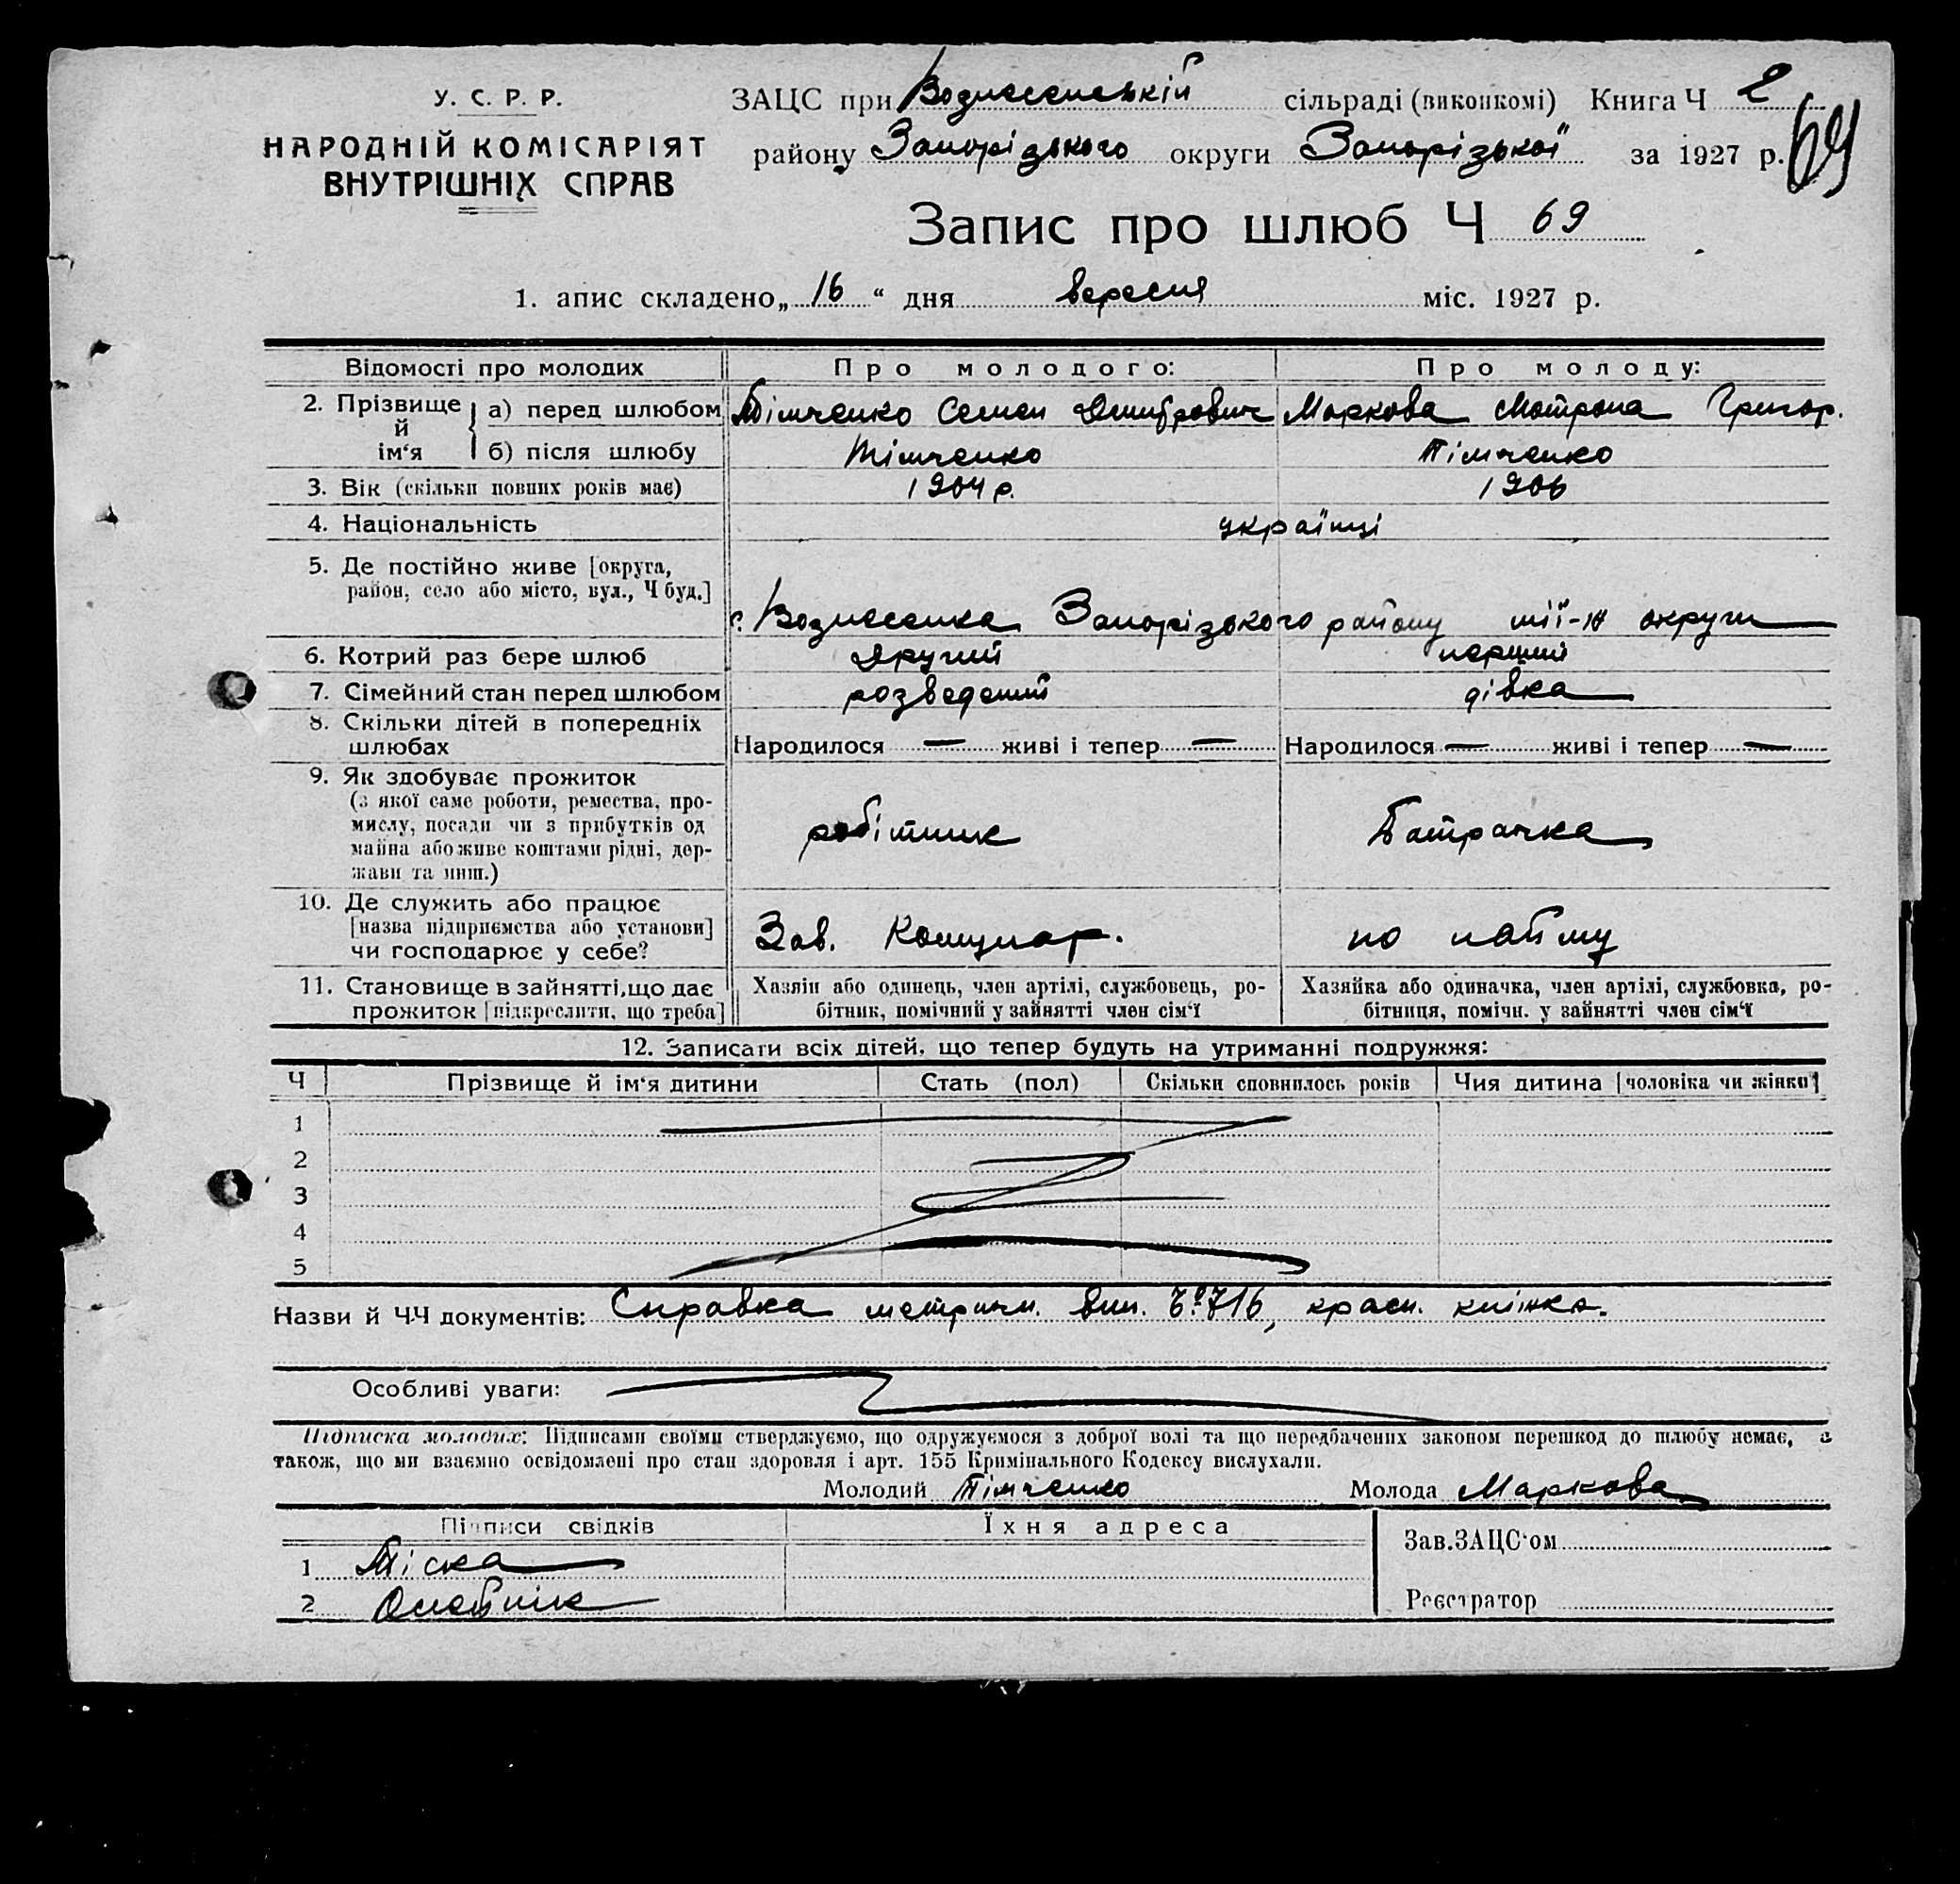 У. С. Р. Р.
НАРОДНІЙ КОМІСАРІЯТ
ВНУТРІШНІХ СПРАВ
ЗАЦС при Вознесенській сільраді (виконкомі) Книга Ч 2
району Запорізького округи Запорізької за 1927 р.
69
Запис про шлюб Ч 69
1. апис складено „16“ дня вересня міс. 1927 р.
Відомості про молодих Про молодого: Про молоду:
2. Прізвище й ім‘я а) перед шлюбом Тімченко Семен Дмитрович Маркова Мотрона Григор.
б) після шлюбу Тімченко Тімченко
3. Вік (скільки повних років має) 1904 р. 1906
4. Національність українці
5. Де постійно живе [округа,
район, село або місто, вул., Ч буд.]
с. Вознесенка Запорізького району тії-ж округи
6. Котрий раз бере шлюб Другий перший
7. Сімейний стан перед шлюбом розведений дівка
8. Скільки дітей в попередніх
шлюбах Народилося — живі і тепер — Народилося — живі і тепер —
9. Як здобуває прожиток
(з якої саме роботи, ремества, про-
мислу, посади чи з прибутків од
майна або живе коштами рідні, дер-
жави та инш.)
робітник Батрачка
10. Де служить або працює
[назва підприємства або установи]
чи господарює у себе?
Зав. Комунар. по найму
11. Становище в зайнятті, що дає
прожиток [підкреслити, що треба]
Хазяїн або одинець, член артілі, службовець, ро-
бітник, помічний у зайнятті член сім‘ї
Хазяйка або одиначка, член артілі, службовка, ро-
бітниця, помічн. у зайнятті член сім‘ї
12. Записати всіх дітей, що тепер будуть на утриманні подружжя:
Ч Прізвище й ім‘я дитини Стать (пол) Скільки сповнилось років Чия дитина [чоловіка чи жінки]
1
2
3
4
5
Назви й Ч.Ч документів: Справка метричн. вип. 716, красн. книжка.
Особливі уваги:
Підписка молодих: Підписами своїми стверджуємо, що одружуємося з доброї волі та що передбачених законом перешкод до шлюбу немає, а
також, що ми взаємно освідомлені про стан здоровля і арт. 155 Кримінального Кодексу вислухали.
Молодий Тімченко Молода Маркова
Підписи свідків Їхня адреса
1 Тіска
2 Олейнік
Зав. ЗАЦС‘ом
Реєстратор